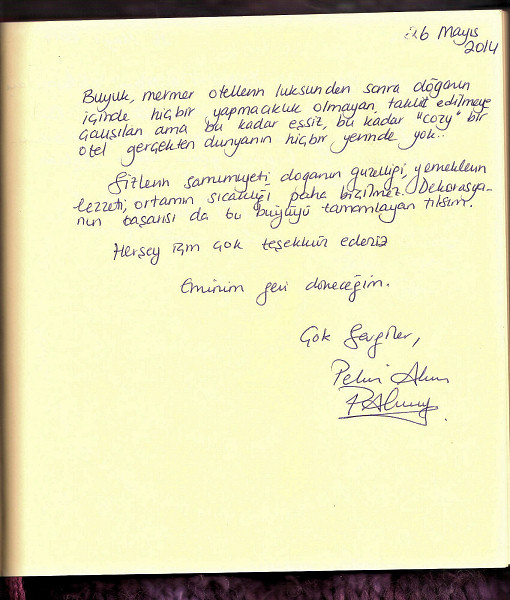 26 Mayıs
2014
Büyük, mermer otellerin lüksünden sonra doğanın
içinde hiçbir yapmacıklık olmayan, taklit edilmeye
çalışılan ama bu kadar eşsiz, bu kadar "cozy" bir
otel gerçekten dünyanın hiçbir yerinde yok..
Sizlerin samimiyeti, doğanın güzelliği, yemeklerin
lezzeti, ortamın sıcaklığı paha biçilmez. Dekorasyo-
nun başarısı da bu büyüyü tamamlayan tılsım.
Herşey için çok teşekkür ederiz
Eminim geri döneceğim.
Çok Sevgiler,
Pelin